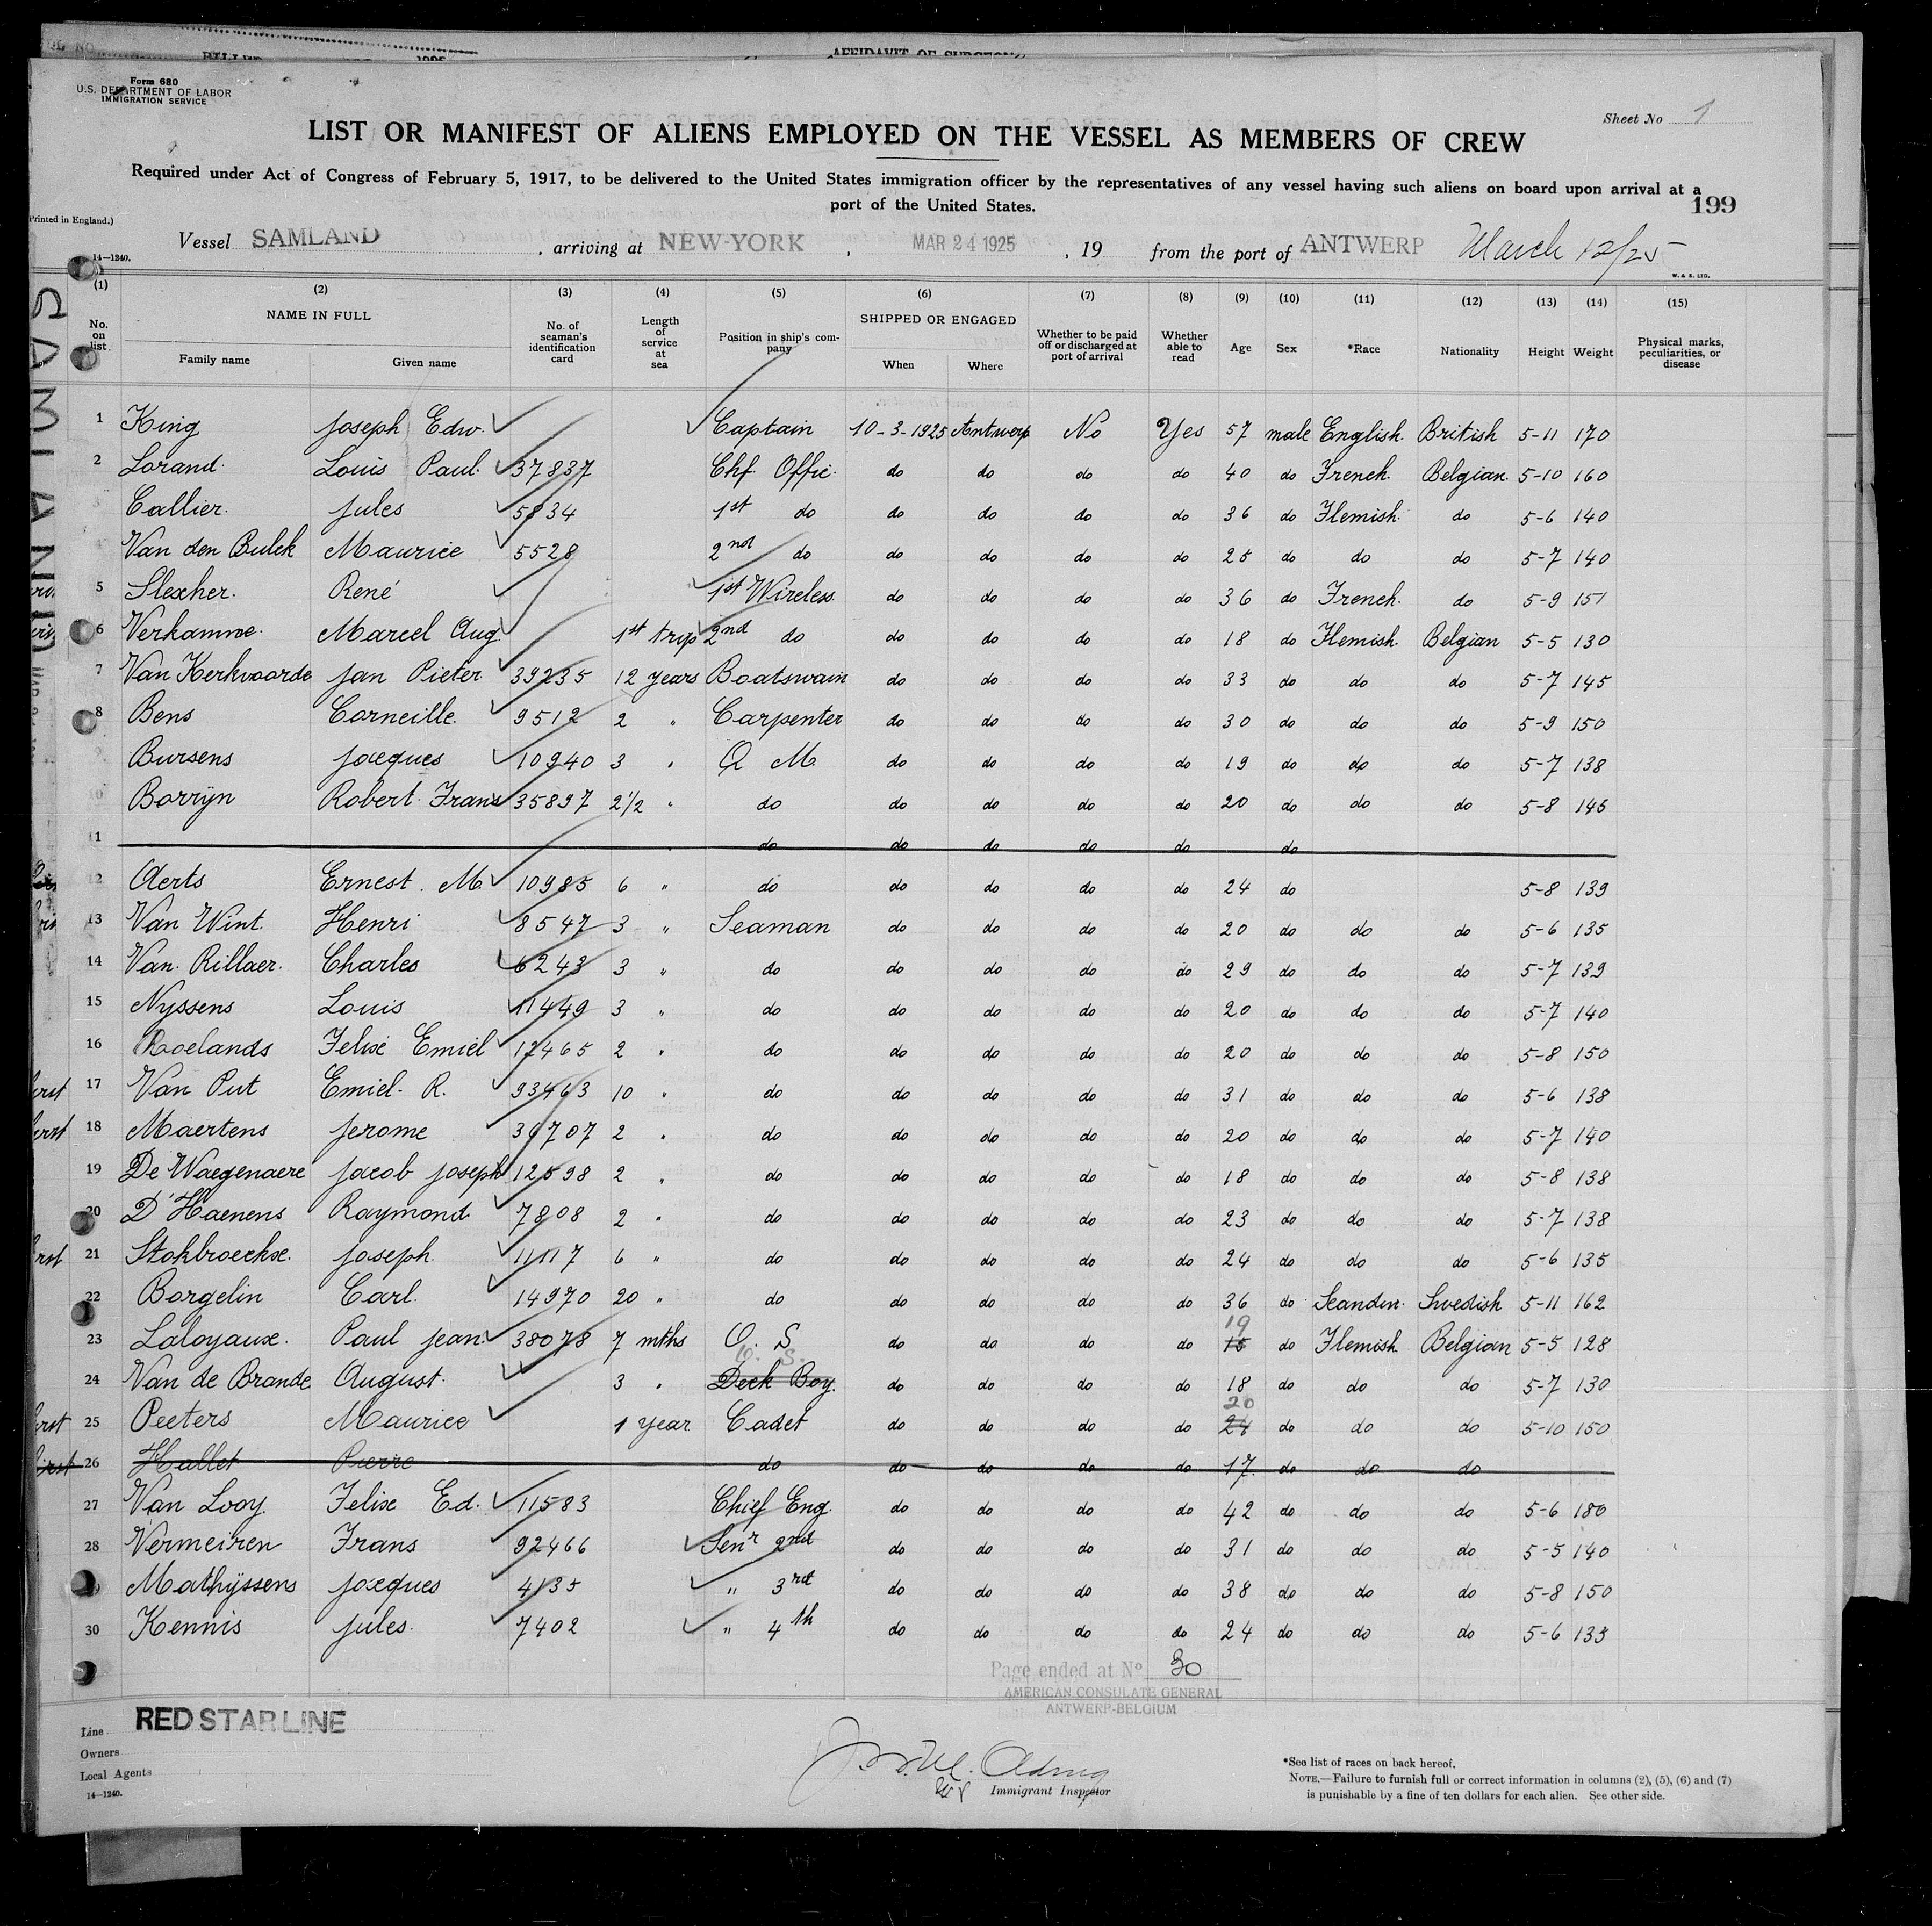 AFFIDAVIT OF SURGEON
Form 680
U.S. DEPARTMENT OF LABOR
IMMIGRATION SERVICE
Sheet No 1
LIST OR MANIFEST OF ALIENS EMPLOYED ON THE VESSEL AS MEMBERS OF CREW
Required under Act of Congress of February 5, 1917, to be delivered to the United States immigration officer by the representatives of any vessel having such aliens on board upon arrival at a
port of the United States.
199
Printed in England.)
Vessel SAMLAND, arriving at NEW-YORK, MAR 24 1925, 19 from the port of ANTWERP March 12/25
14—1240.
W. & S. LTD.
(1) (2) (3) (4) (5) (6) (7) (8) (9) (10) (11) (12) (13) (14) (15)
No. on list. NAME IN FULL Family name Given name No. of seaman's identification card Length of service at sea Position in ship's company SHIPPED OR ENGAGED When Where Whether to be paid off or discharged at port of arrival Whether able to read Age Sex *Race Nationality Height Weight Physical marks, peculiarities, or disease
1 King Joseph Edw. Captain 10-3-1925 Antwerp No Yes 57 male English. British 5-11 170
2 Lorand. Louis Paul. 37837 Chf. Offic. do do do do 40 do French. Belgian. 5-10 160
Callier. Jules 5834 1st do do do do do 36 do Flemish. do 5-6 140
Van den Bulck Maurice 5528 2nd do do do do do 25 do do do 5-7 140
5 Slexher. René 1st Wireless do do do do 36 do French. do 5-9 151
6 Verkamme. Marcel Aug. 1st trip 2nd do do do do do 18 do Flemish. Belgian 5-5 130
7 Van Kerkvoorde Jan Pieter 39235 12 years Boatswain do do do do 33 do do do 5-7 145
8 Bens Corneille. 9512 2 " Carpenter do do do do 30 do do do 5-9 150
Bursens Jacques 10940 3 " Q M. do do do do 19 do do do 5-7 138
10 Borrÿn Robert Frans 35897 2 1/2 " do do do do do 20 do do do 5-8 145
11 do do do do do do
12 Aerts Ernest. M. 10985 6 " do do do do do 24 do 5-8 139
13 Van Wint. Henri 8547 3 " Seaman do do do do 20 do do do 5-6 135
14 Van Rillaer. Charles 6243 3 " do do do do do 29 do do do 5-7 139
15 Nyssens Louis 11449 3 " do do do do do 20 do do do 5-7 140
16 Roelands Felix Emiel 12465 2 " do do do do do 20 do do do 5-8 150
17 Van Put Emiel. R. 93463 10 " do do do do do 31 do do do 5-6 138
18 Maertens Jerome 36707 2 " do do do do do 20 do do do 5-7 140
19 De Waegenaere Jacob Joseph 12598 2 " do do do do do 18 do do do 5-8 138
20 D'Haenens Raymond 7808 2 " do do do do do 23 do do do 5-7 138
21 Stokbroeckx. Joseph. 11117 6 " do do do do do 24 do do do 5-6 135
22 Borgelin Carl. 14970 20 " do do do do do 36 do Scandin. Swedish 5-11 162
23 Laloyaux. Paul Jean. 38078 7 mths O. S do do do do 18 19 do Flemish. Belgian 5-5 128
24 Van de Brande August. 3 " Deck Boy. O. S. do do do do 18 do do do 5-7 130
25 Peeters Maurice 1 year Cadet do do do do 24 20 do do do 5-10 150
26 Hallet Pierre do do do do do 17. do do do
27 Van Looy Felix Ed. 11583 Chief Eng. do do do do 42 do do do 5-6 180
28 Vermeiren Frans 92466 Senr 2nd do do do do 31 do do do 5-5 140
Mathÿssens Jacques 4135 " 3rd do do do do 38 do do do 5-8 150
30 Kennis Jules. 7402 " 4th do do do do 24 do do do 5-6 133
Page ended at No 30
AMERICAN CONSULATE GENERAL
ANTWERP-BELGIUM
Line RED STAR LINE
Owners
Local Agents
14—1240.
Immigrant Inspector
*See list of races on back hereof.
NOTE.—Failure to furnish full or correct information in columns (2), (5), (6) and (7)
is punishable by a fine of ten dollars for each alien. See other side.
SAMLAND